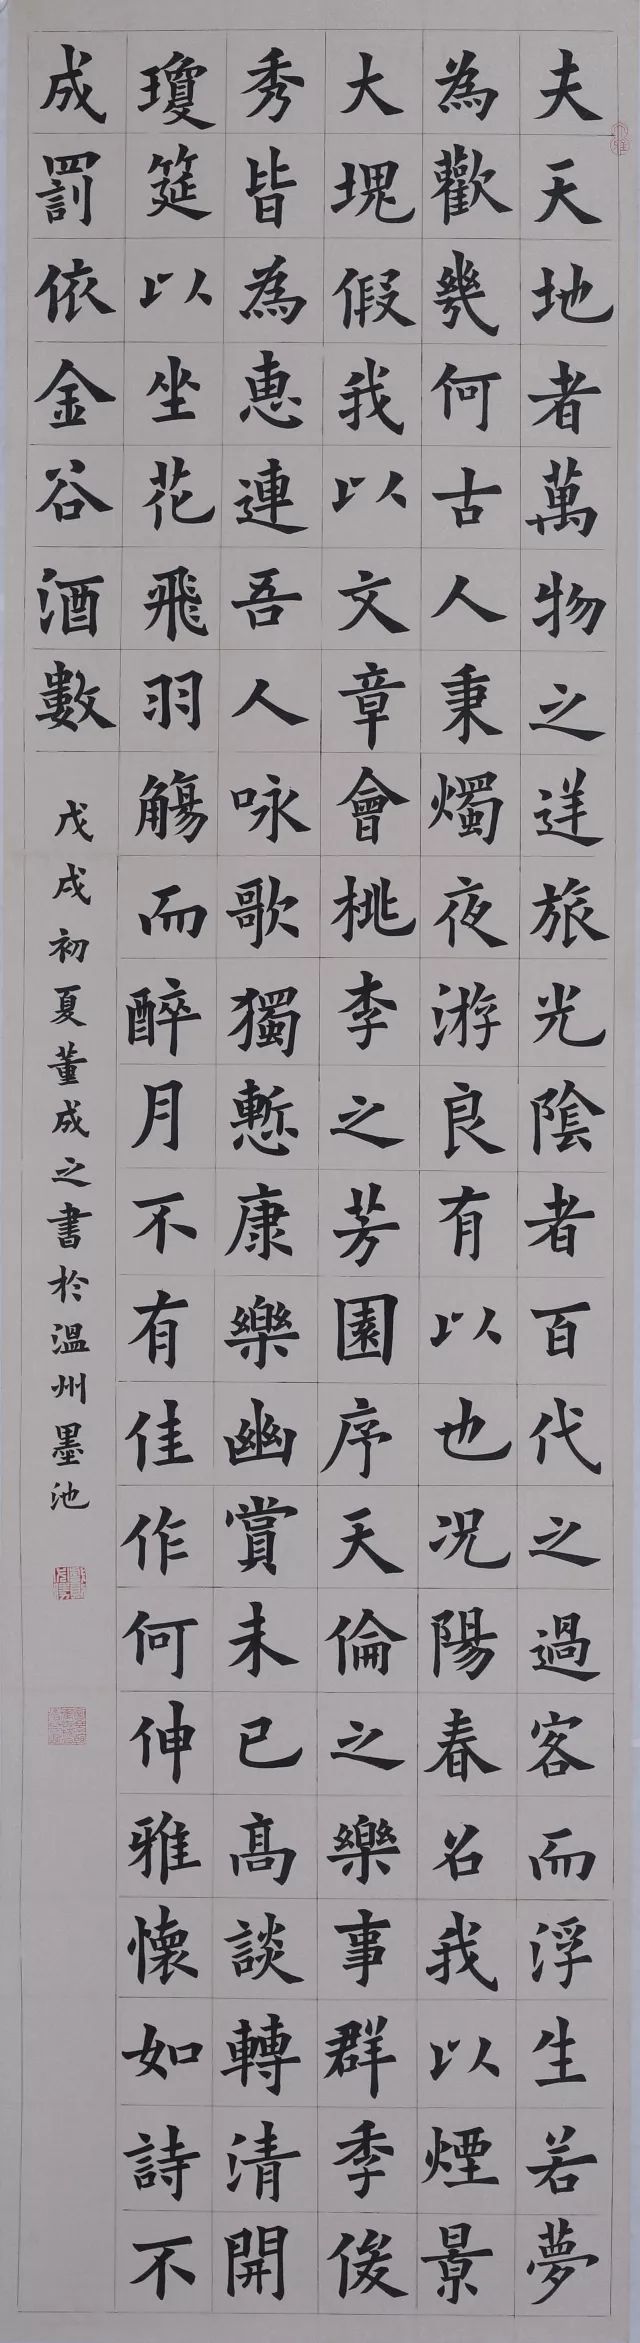 夫天地者萬物之逆旅光陰者百代之過客而浮生若夢
為歡幾何古人秉燭夜游良有以也况陽春召我以煙景
大塊假我以文章會桃李之芳園序天倫之樂事群季俊
秀皆為惠連吾人咏歌獨慙康樂幽賞未已高談轉清開
瓊筵以坐花飛羽觴而醉月不有佳作何伸雅懷如詩不
成罰依金谷酒數
戊戌初夏董成之書於温州墨池